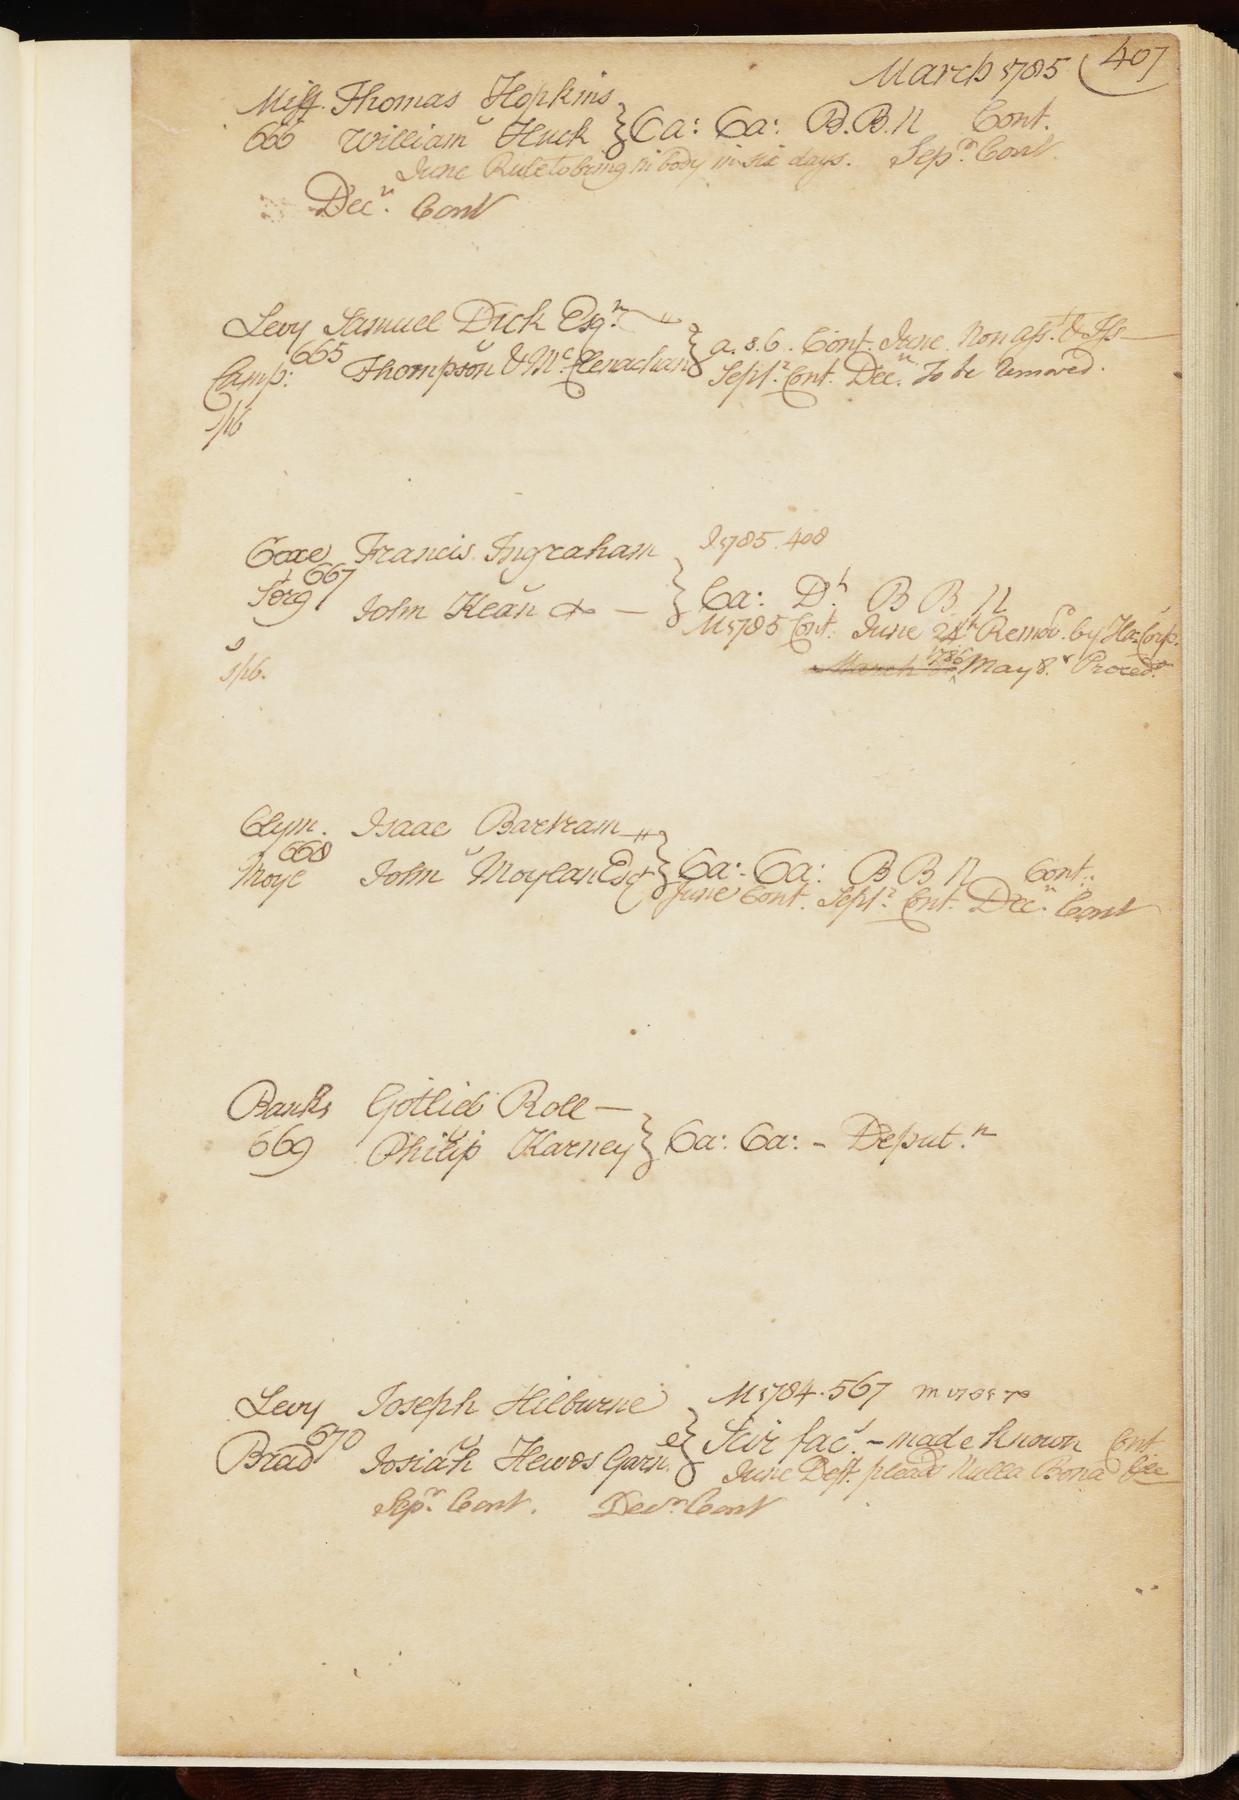 March 1785 (407
Miff. Thomas Hopkins
666 William Huck } Ca: Ca: B.B.N Cont.
June Rule to bring in body in six days. Sepr. Cont.
Decr. Cont
Levy Samuel Dick Esqr.
Camp: 665 Thompson & McClenachan } a. s. b. Cont. June Non ass. & Iss
Septr. Cont. Decr. To be Removed.
Spb
Coxe Francis Ingraham J 1785. 408
Serg 667 John Kean } Ca: Do B B N
M 1785 Cont. June 24th Remov. by Ha: Corp.
Spb. March 1786 May 8. Proced.
Clym. Isaac Bartram
Moyl 668 John Moylan Esqr } Ca: Ca: B B N Cont.
June Cont. Septr. Cont. Decr. Cont
Banks Gotlieb Roll
669 Philip Karney } Ca: Ca: - Deput.n
Levy Joseph Hilburne M 1784. 567
Brad 670 Josiah Hewes Garn.e } Scir fac. - made known Cont.
June Deft. pleads Nulla Bona &c
Sepr. Cont. Decr. Cont